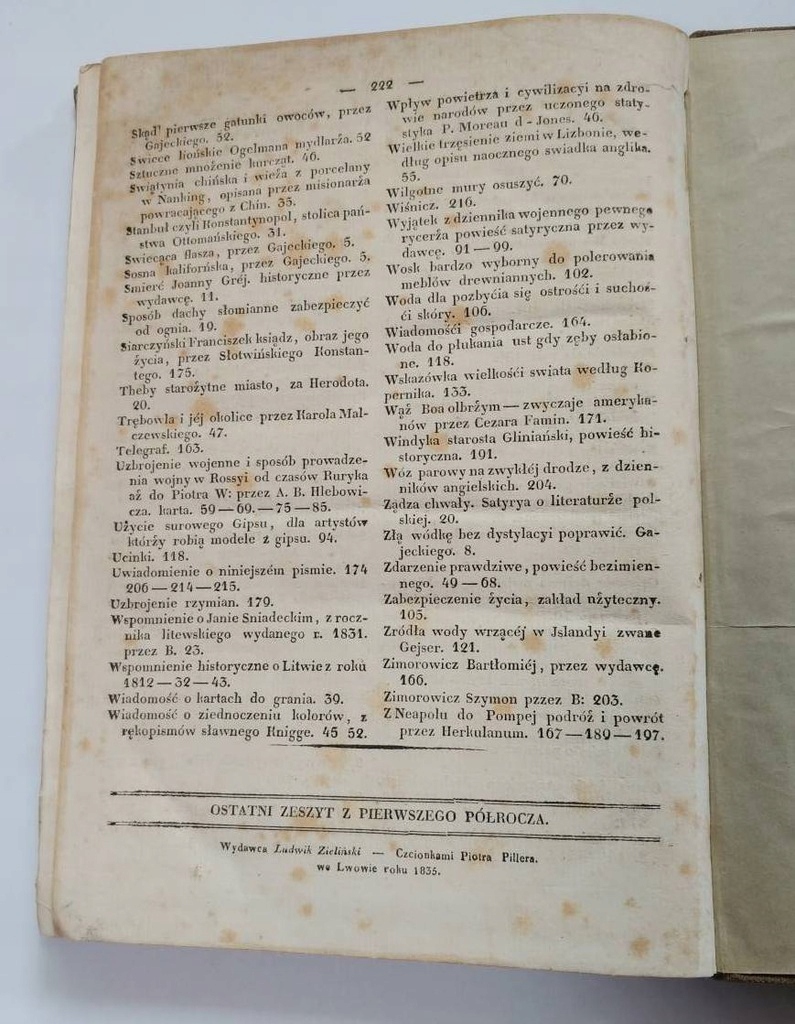 — 222 —
Skąd' pierwsze gatunki owoców, przez
Gajeckiego. 52.
Swiece liońskie Ogelmana mydlarźa. 52
Sztuczne mnożenie kurcząt. 46.
Swiątynia chińska i wieźa z porcelany
w Nanking, opisana przez misionarźa
powracającego z Chin. 35.
Stanbuł czyli Konstantynopol, stolica pań-
stwa Ottomańskiego. 31.
Swiecąca flasza, przez Gajeckiego. 5.
Sosna kalifornska, przez Gajeckiego. 5.
Smierć Joanny Gréj. historyczne przez
wydawcę. 11.
Sposób dachy słomianne zabezpieczyć
od ognia. 19.
Siarczyński Franciszek ksiądz, obraz jego
życia, przez Słotwińskiego Konstan-
tego. 175.
Theby staroźytne miasto, za Herodota.
20.
Trębowla i jéj okolice przez Karola Mal-
czewskiego. 47.
Telegraf. 163.
Uzbrojenie wojenne i sposób prowadze-
nia wojny w Rossyi od czasów Ruryka
aź do Piotra W: przez A. B. Hlebowi-
cza. karta. 59—69.—75—85.
Użycie surowego Gipsu, dla artystów
którźy robią modele z gipsu. 94.
Ucinki. 118.
Uwiadomienie o niniejszém pismie. 174
206—214—215.
Uzbrojenie rzymian. 179.
Wspomnienie o Janie Sniadeckim, z rocz-
nika litewskiego wydanego r. 1831.
przez B. 23.
Wspomnienie historyczne o Litwie z roku
1812—32—43.
Wiadomość o kartach do grania. 39.
Wiadomość o ziednoczeniu kolorów, z
rękopismów sławnego Knigge. 45 52.
Wpływ powietrźa i cywilizacyi na zdro-
wie narodów przez uczonego staty-
styka P. Moreau d-Jones. 46.
Wielkie trzęsienie ziemi w Lizbonie, we-
dług opisu naocznego swiadka anglika.
55.
Wilgotne mury osuszyć. 70.
Wiśnicz. 216.
Wyjątek z dziennika wojennego pewnego
rycerźa powieść satyryczna przez wy-
dawcę. 91—99.
Wosk bardzo wyborny do polerowania
meblów drewniannych. 102.
Woda dla pozbyćia się ostrośći i suchoś-
ći skóry. 106.
Wiadomośći gospodarcze. 164.
Woda do płukania ust gdy zęby osłabio-
ne. 118.
Wskazówka wielkośći swiata według Ko-
pernika. 133.
Wąź Boa olbrźym—zwyczaje ameryka-
nów przez Cezara Famin. 171.
Windyka starosta Gliniański, powieść hi-
storyczna. 191.
Wóz parowy na zwykłéj drodze, z dzien-
ników angielskich. 204.
Ządza chwały. Satyrya o literaturźe pol-
skiej. 20.
Złą wódkę bez dystylacyi poprawić. Ga-
jeckiego. 8.
Zdarzenie prawdziwe, powieść bezimien-
nego. 49—68.
Zabezpieczenie życia, zakład użyteczny.
105.
Zródła wody wrzącéj w Jslandyi zwane
Gejser. 121.
Zimorowicz Bartłomiéj, przez wydawcę.
166.
Zimorowicz Szymon pzzez B: 203.
Z Neapolu do Pompej podróź i powrót
przez Herkulanum. 167—189—197.
OSTATNI ZESZYT Z PIERWSZEGO PÓŁROCZA.
Wydawca Ludwik Zieliński — Czcionkami Piotra Pillera.
we Lwowie roku 1835.